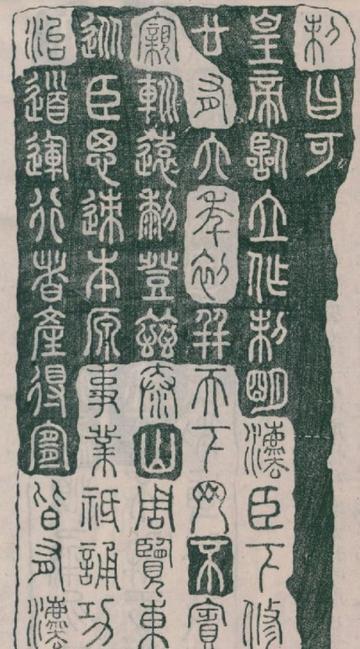 制曰可
皇帝臨立作制明灋臣下脩
廿有六年初并天下罔不賓
寴巡遠黎登茲泰山周覽東
從臣思迹本原事業祗誦功
治道運行者產得宜皆有灋